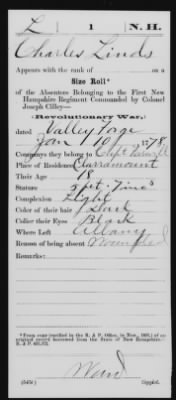 L 1 N. H.
Charles Linds
Appears with the rank of on a
Size Roll*
of the Absentees Belonging to the First New
Hampshire Regiment Commanded by Colonel
Joseph Cilley—
(Revolutionary War,)
dated Valley Forge
Jan 10 1778.
Company they belong to Capt
Place of Residence Charramount
Their Age 18
Stature 5 feet - 7 ins
Complexion Light
Color of their hair Dark
Collier their Eyes Black
Where Left Albany
Reason of being absent Wounded
Remarks:
*From copy (verified in the R. & P. Office, in Nov., 1891,) of an
original record borrowed from the State of New Hampshire.—
R. & P.
Ward
(545c) Copyist.